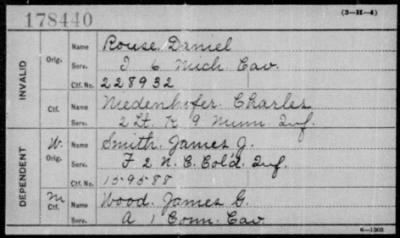 178440
(3-H-4)
INVALID
Orig.
Name Rouse, Daniel
Serv. I 6 Mich. Cav.
Ctf. No. 228932
Ctf.
Name Niedenhofer, Charles
Serv. 2 Lt. K 9 Minn Inf.
DEPENDENT
W. Orig.
Name Smith, James J.
Serv. F 2 N.C. Cold. Inf.
Ctf. No. 15-95-88
M Ctf.
Name Wood, James G.
Serv. A 1 Conn. Cav